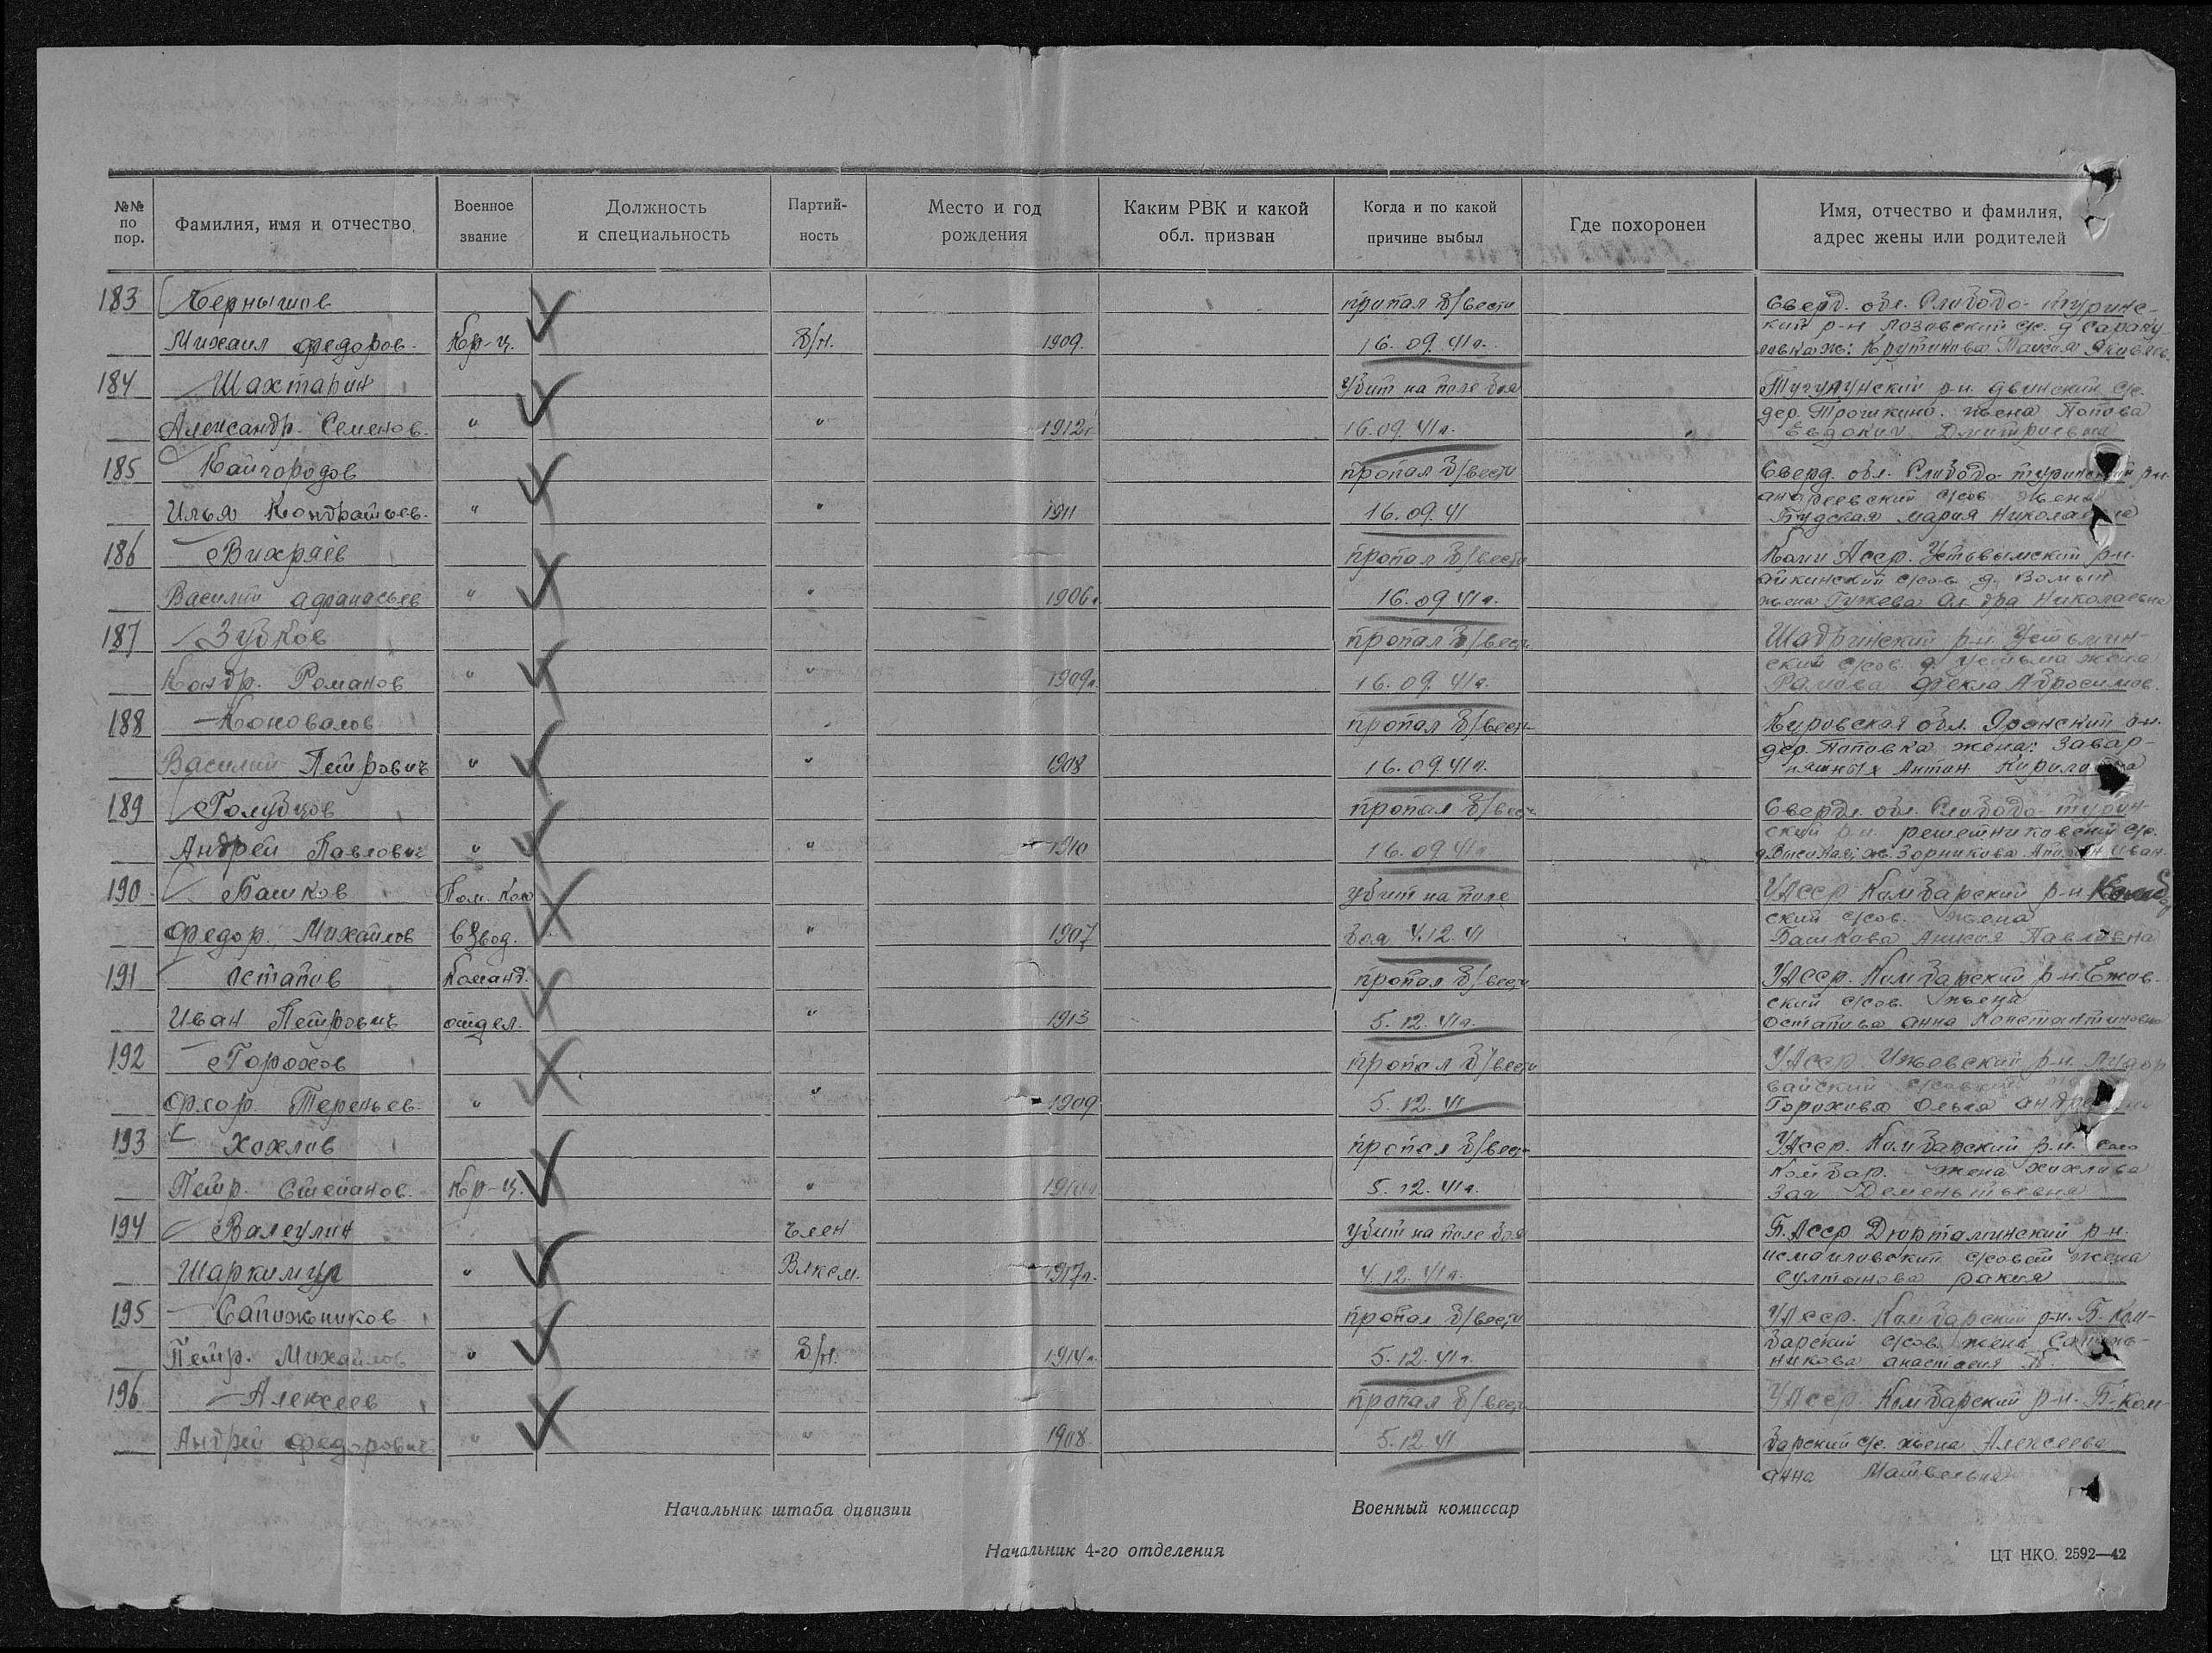 №№ по пор. Фамилия, имя и отчество Военное звание Должность и специальность Партий-ность Место и год рождения Каким РВК и какой обл. призван Когда и по какой причине выбыл Где похоронен Имя, отчество и фамилия, адрес жены или родителей
183 Чернышов пропал б/вести Сверд. обл. Слободо-турин-
ский р-н с/с. д
Михаил Федоров. Кр-ц. б/п. 1909. 16.09.41г. ж:
184 Шахтарин Убит на поле боя Тугулунский р-н. двинский с/с.
дер. Трошкино. жена Попова
Александр. Семенов. " " 1912г 16.09.41г. Евдокия Дмитриевна
185 Кайгородов пропал б/вести Сверд. обл. Слободо туринский р-н.
андреевский с/сов жена
Илья Кондратьев. " " 1911 16.09.41 Мария Николаевна
186 Вихряев пропал б/вести Коми Асср. Устьвымский р-н.
айкинский с/сов д.
Василий афанасьев " " 1906г. 16.09.41г. жена Гужева Ал-дра Николаевна
187 Зубков пропал б/вести Шадринский р-н.
с/сов. д. жена
Кондр. Романов " " 1909г. 16.09.41г. Фекла Абросимов.
188 Коновалов пропал б/вести Кировская обл. р-н.
дер. Поповка жена:
Василий Петрович " " 1908 16.09.41г. Антон. Кирил
189 Голубцов пропал б/вести Сверд. обл. Слободо турин-
ский р-н. решетниковский с/с.
Андрей Павлович " " 1910 16.09.41г ж. Зорникова Иван.
190 Башков Пом. Ком Убит на поле УАсср Камбарский р-н
ский с/сов. жена
Федор. Михайлов взвод. " 1907 боя 4.12.41 Башкова Павловна
191 Остапов Команд. пропал б/вести УАсср. Камбарский р-н. Ежов-
ский с/сов. жена
Иван Петрович отдел. " 1913 5.12.41г. Остапова анна Константиновна
192 Горохов пропал б/вести УАсср. Ижевский р-н.
Флор. Терентьев. " " 1909 5.12.41 Горохова Ольга
193 Хохлов пропал б/вести УАсср. Камбарский р-н. село
Камбар. жена Хохлова
Петр. Степанов. Кр-ц. " 5.12.41г. Зоя Дементьевна
194 Валеулин Член Убит на поле боя Б.Асср Дюртюлинский р-н.
исмаиловский с/совет жена
" Влксм. 1917г. 4.12.41г. Султанова ракия
195 Сапожников пропал б/вести УАсср. Камбарский р-н. Б. Кам-
барский с/сов. жена Сапож-
Петр. Михайлов " б/п. 1914г. 5.12.41г. никова анастасия
196 Алексеев пропал б/вести УАсср. Камбарский р-н. Б-Кам-
Андрей Федорович " " 1908 5.12.41 барский с/с. жена Алексеева
анна Матвеевна
Начальник штаба дивизии Военный комиссар
Начальник 4-го отделения ЦТ НКО. 2592—42